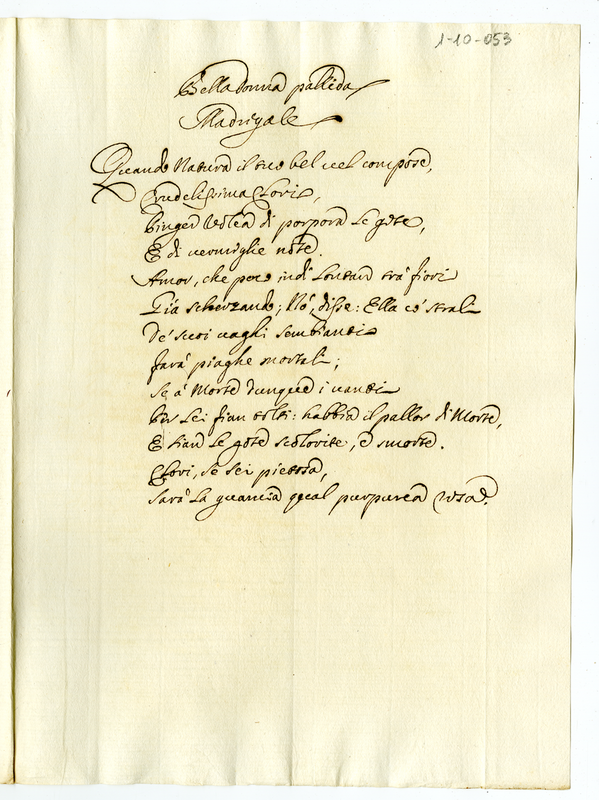 1-10-053
Bella donna pallida
Madrigale
Quando Natura il tuo bel vel compose,
Crudelissima Clori,
Pinger volea di porpora le gote,
E di vermiglie note.
Amor, che poco indi lontan trà fiori
Già scherzando; Nò, disse: Ella co' strali
De' suoi vaghi sembianti
Farà piaghe mortali;
Se à Morte dunque i vanti
Per Lei fian tolti: habbia il pallor di Morte,
E sian le gote scolorite, e smorte.
Clori, se sei pietosa,
Sarà la guancia qual purpurea rosa.